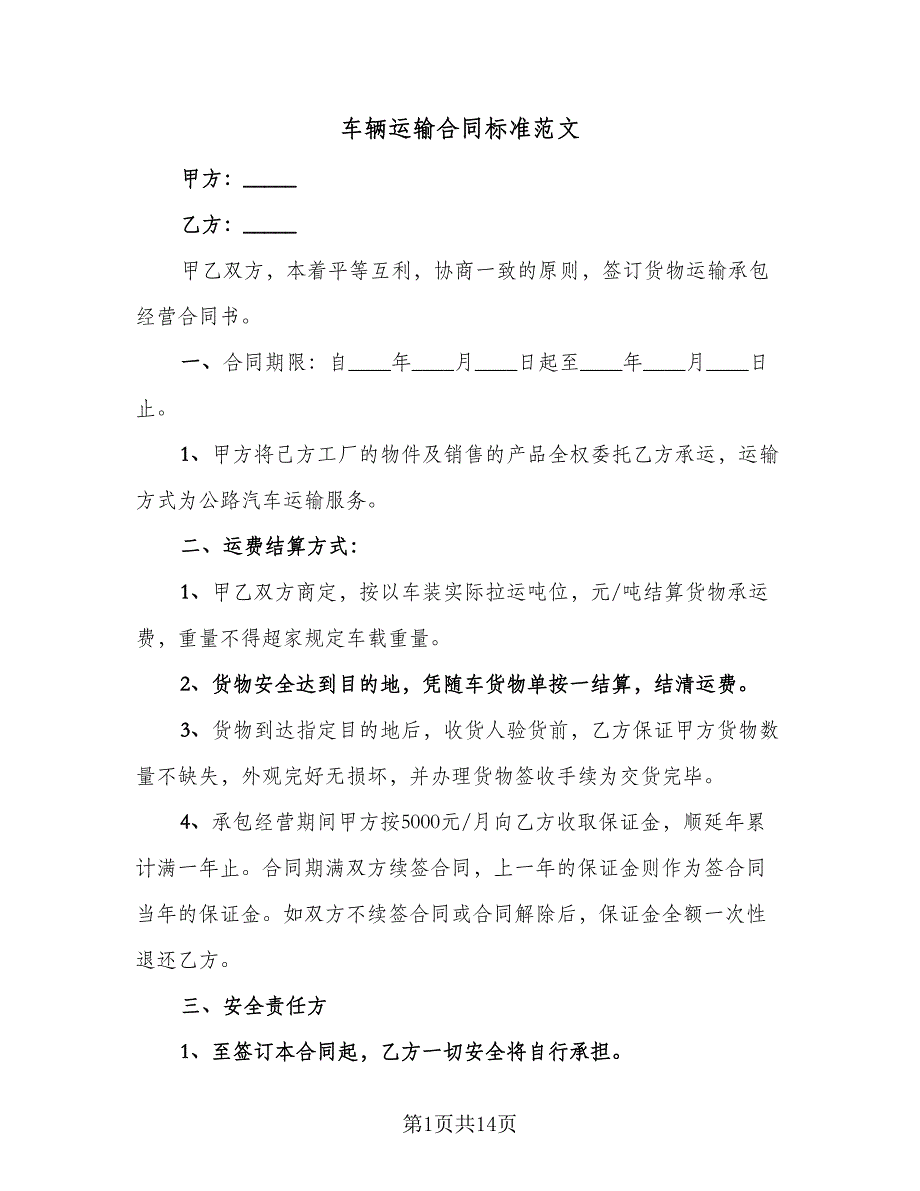 车辆运输合同标准范文
甲方：_____
乙方：_____
甲乙双方，本着平等互利，协商一致的原则，签订货物运输承包
经营合同书。
一、合同期限：自____年____月____日起至____年____月____日
止。
1、甲方将己方工厂的物件及销售的产品全权委托乙方承运，运输
方式为公路汽车运输服务。
二、运费结算方式：
1、甲乙双方商定，按以车装实际拉运吨位，元/吨结算货物承运
费，重量不得超家规定车载重量。
2、货物安全达到目的地，凭随车货物单按一结算，结清运费。
3、货物到达指定目的地后，收货人验货前，乙方保证甲方货物数
量不缺失，外观完好无损坏，并办理货物签收手续为交货完毕。
4、承包经营期间甲方按5000元/月向乙方收取保证金，顺延年累
计满一年止。合同期满双方续签合同，上一年的保证金则作为签合同
当年的保证金。如双方不续签合同或合同解除后，保证金全额一次性
退还乙方。
三、安全责任方
1、至签订本合同起，乙方一切安全将自行承担。
第1页共14页